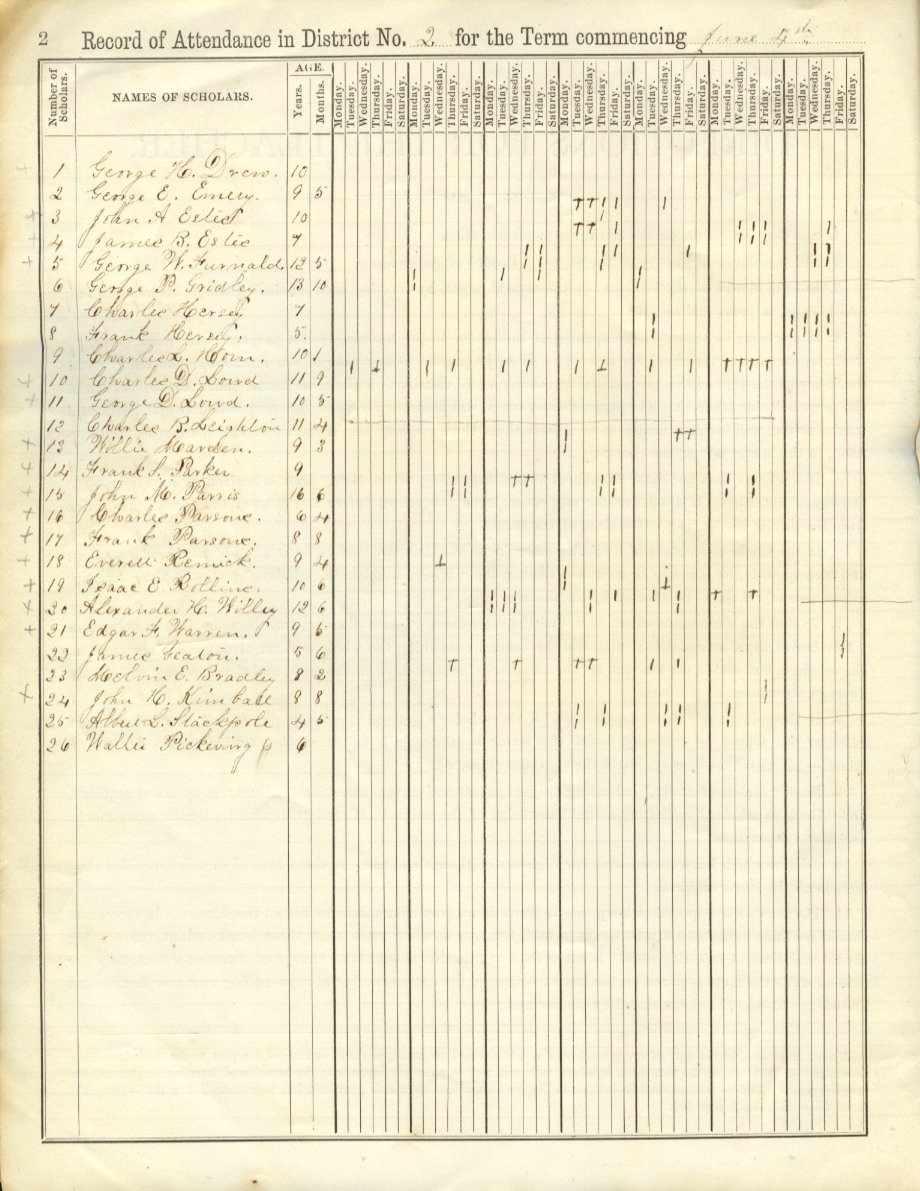 2 Record of Attendance in District No. 2 for the Term commencing June 4th
Number of Scholars. NAMES OF SCHOLARS. AGE. Years. Months. Monday. Tuesday. Wednesday. Thursday. Friday. Saturday. Monday. Tuesday. Wednesday. Thursday. Friday. Saturday. Monday. Tuesday. Wednesday. Thursday. Friday. Saturday. Monday. Tuesday. Wednesday. Thursday. Friday. Saturday. Monday. Tuesday. Wednesday. Thursday. Friday. Saturday. Monday. Tuesday. Wednesday. Thursday. Friday. Saturday. Monday. Tuesday. Wednesday. Thursday. Friday. Saturday.
1 George H. Drew. 10
2 George E. Emery. 9 5
3 John A Estes 10
4 James B. Estes 7
5 George W. Furnald. 12 5
6 George P. Gridley. 13 10
7 Charles Hersey 7
8 Frank Hersey. 5.
9 Charles L. Horn. 10 1
10 Charles D. Lowd 11 9
11 George D. Lowd. 10 5
12 Charles B. Leighton 11 4
13 Willie Marden. 9 3
14 Frank S. Parker 9
15 John M. Parris 16 6
16 Charles Parsons. 6 4
17 Frank Parsons. 8 8
18 Everett Remick. 9 4
19 Isaac E Rollins. 10 6
20 Alexander H. Willey 12 6
21 Edgar F. Warren. 9 5
22 James Seaton. 5 6
23 Melvin E. Bradley 8 2
24 John H. Kimball 8 8
25 Albert L. Stackpole 4 5
26 Wallie Pickering 6